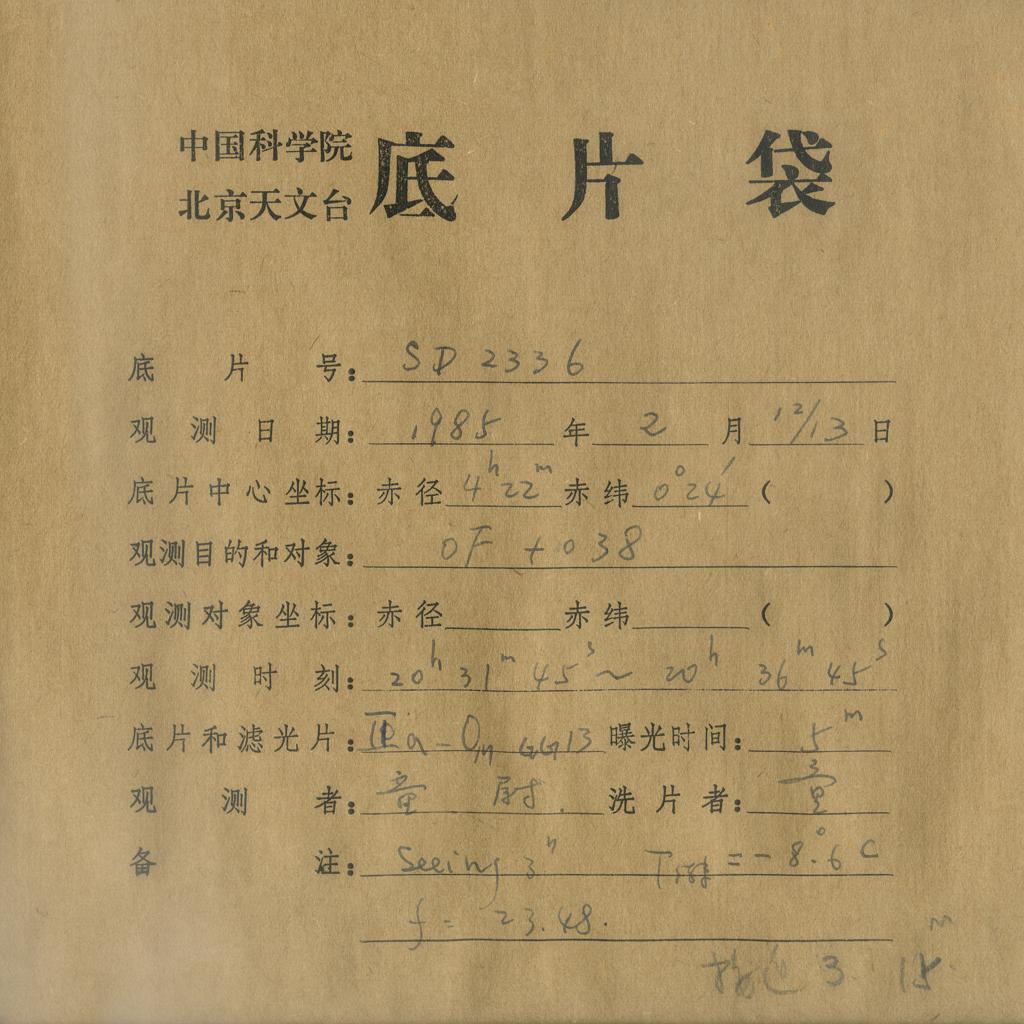 中国科学院
北京天文台
底片袋
底片号: SD 2336
观测日期: 1985年2月12/13日
底片中心坐标: 赤径4h22m赤纬0°24′( )
观测目的和对象: OF +038
观测对象坐标: 赤径 赤纬 ( )
观测时刻: 20h31m45s~20h36m45s
底片和滤光片: IIa-O, GG13 曝光时间: 5m
观测者: 童 尉. 洗片者: 童
备注: Seeing 3″ T = -8°.6 C
f = 23.48.
3 15m